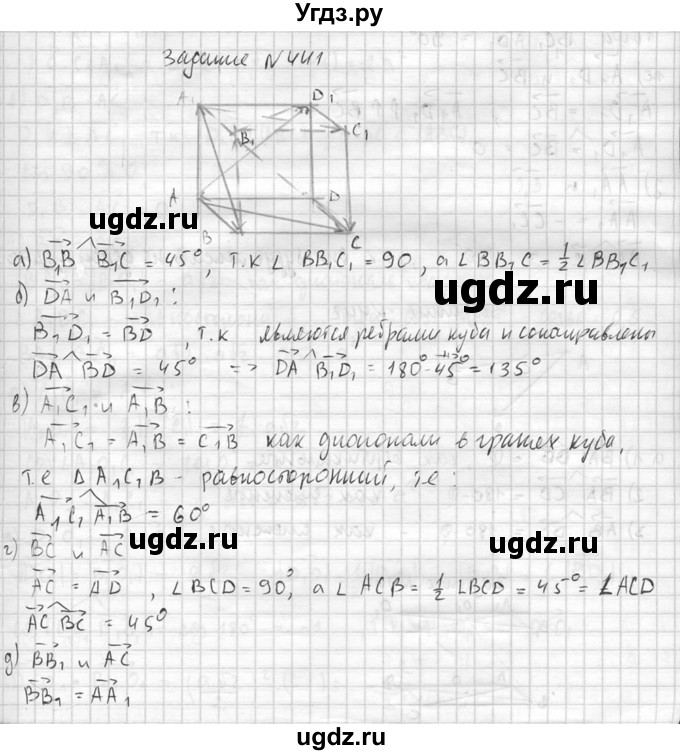 Угдз.ру
Задание №441
A₁ D₁
B₁ C₁
A D
B C
ugdz.ru ugdz.ru
а) B₁B ^ B₁C = 45°, т.к ∠ BB₁C₁ = 90, а ∠ BB₁C = ½ ∠ BB₁C₁
ugdz.ru
б) DA и B₁D₁ :
B₁D₁ = BD, т.к являются ребрами куба и сонаправлены
DA ^ BD = 45° => DA ^ B₁D₁ = 180° - 45° = 135°
в) A₁C₁ и A₁B :
A₁C₁ = A₁B = C₁B как диогонали в гранях куба,
т.е Δ A₁C₁B - равносторонний, т.е :
A₁C₁ ^ A₁B = 60°
ugdz.ru ugdz.ru
г) BC и AC
AC = AD, ∠ BCD = 90°, а ∠ ACB = ½ ∠BCD = 45° = ∠ACD
AC ^ BC = 45°
д) BB₁ и AC
BB₁ = AA₁
ugdz.ru ugdz.ru
ugdz.ru